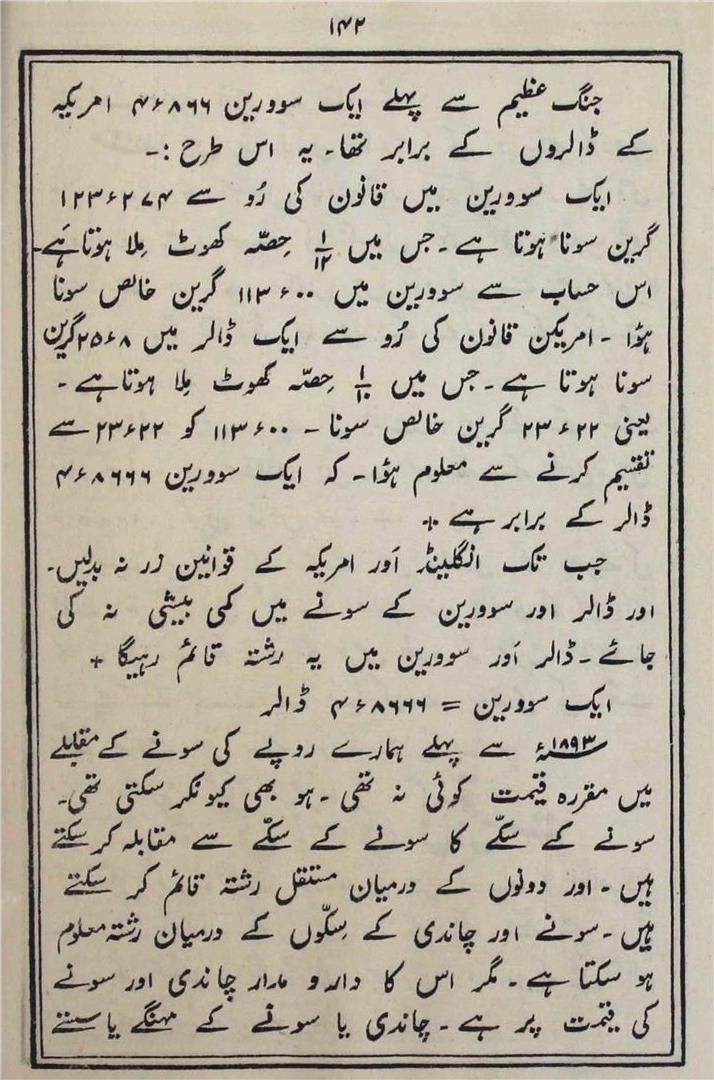 ۱۴۲
جنگ عظیم سے پہلے ایک سوورین ۴ء۸۶۶ امریکہ
کے ڈالروں کے برابر تھا۔ یہ اس طرح :۔
ایک سوورین میں قانون کی رُو سے ۱۲۳ء۲۷۴
گرین سونا ہوتا ہے۔ جس میں ۱/۱۲ حِصّہ کھوٹ مِلا ہوتا ہَے۔
اس حساب سے سوورین میں ۱۱۳ء۰۰ گرین خالص سونا
ہؤا ۔ امریکن قانون کی رُو سے ایک ڈالر میں ۲۵ء۸ گرین
سونا ہوتا ہے۔ جس میں ۱/۱۰ حِصّہ کھوٹ مِلا ہوتا ہے ۔
یعنی ۲۳ء۲۲ گرین خالص سونا ۔ ۱۱۳ء۰۰ کو ۲۳ء۲۲ سے
تقسیم کرنے سے معلوم ہؤا۔ کہ ایک سوورین ۴ء۸۶۶۶
ڈالر کے برابر ہے +
جب تک انگلینڈ اَور امریکہ کے قوانین زر نہ بدلیں۔
اور ڈالر اور سوورین کے سونے میں کمی بیشی نہ کی
جائے ۔ ڈالر اَور سوورین میں یہ رشتہ قائم رہیگا +
ایک سوورین = ۴ء۸۶۶۶ ڈالر
۱۸۹۳ء سے پہلے ہمارے روپے کی سونے کے مقابلے
میں مقررہ قیمت کوئی نہ تھی ۔ ہو بھی کیونکر سکتی تھی۔
سونے کے سکّے کا سونے کے سکّے سے مقابلہ کر سکتے
ہیں ۔ اور دونوں کے درمیان مستقل رشتہ قائم کر سکتے
ہیں ۔ سونے اور چاندی کے سِکّوں کے درمیان رشتہ معلوم
ہو سکتا ہے ۔ مگر اس کا دارو مدار چاندی اور سونے
کی قیمت پر ہے ۔ چاندی یا سونے کے مہنگے یا سستے